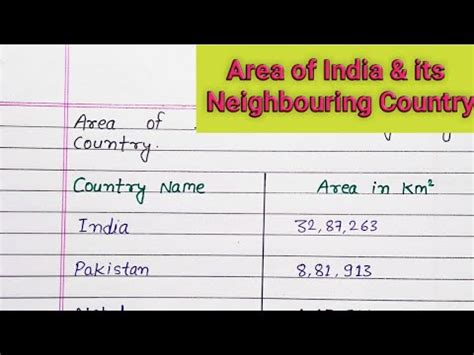 Area of India & its
Neighbouring Country
Area of
Country.
Country Name Area in Km²
India 32,87,263
Pakistan 8,81,913